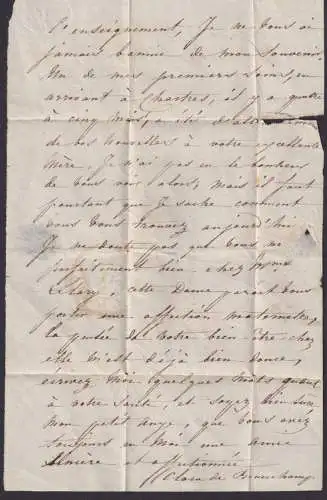 l'enseignement, Je ne vous ai
jamais bannie de mon souvenir.
Un de mes premiers soins, en
arrivant à Chartres, il y a quatre
à cinq mois, a été
de vos nouvelles à votre excellente
Mère. Je n'ai pas eu le bonheur
de vous voir alors, mais il faut
pourtant que Je sache comment
vous vous trouvez aujourd'hui
Je ne doute pas que vous ne
parfaitement bien chez Mme
cette Dame parait vous
porter une affection maternelle,
la pensée de votre bien être chez
elle m'est déjà bien douce,
écrivez moi quelques mots quant
à votre santé, et soyez bien sure
mon petit ange, que vous avez
toujours en Moi une amie
sincère et affectionnée
Clara de